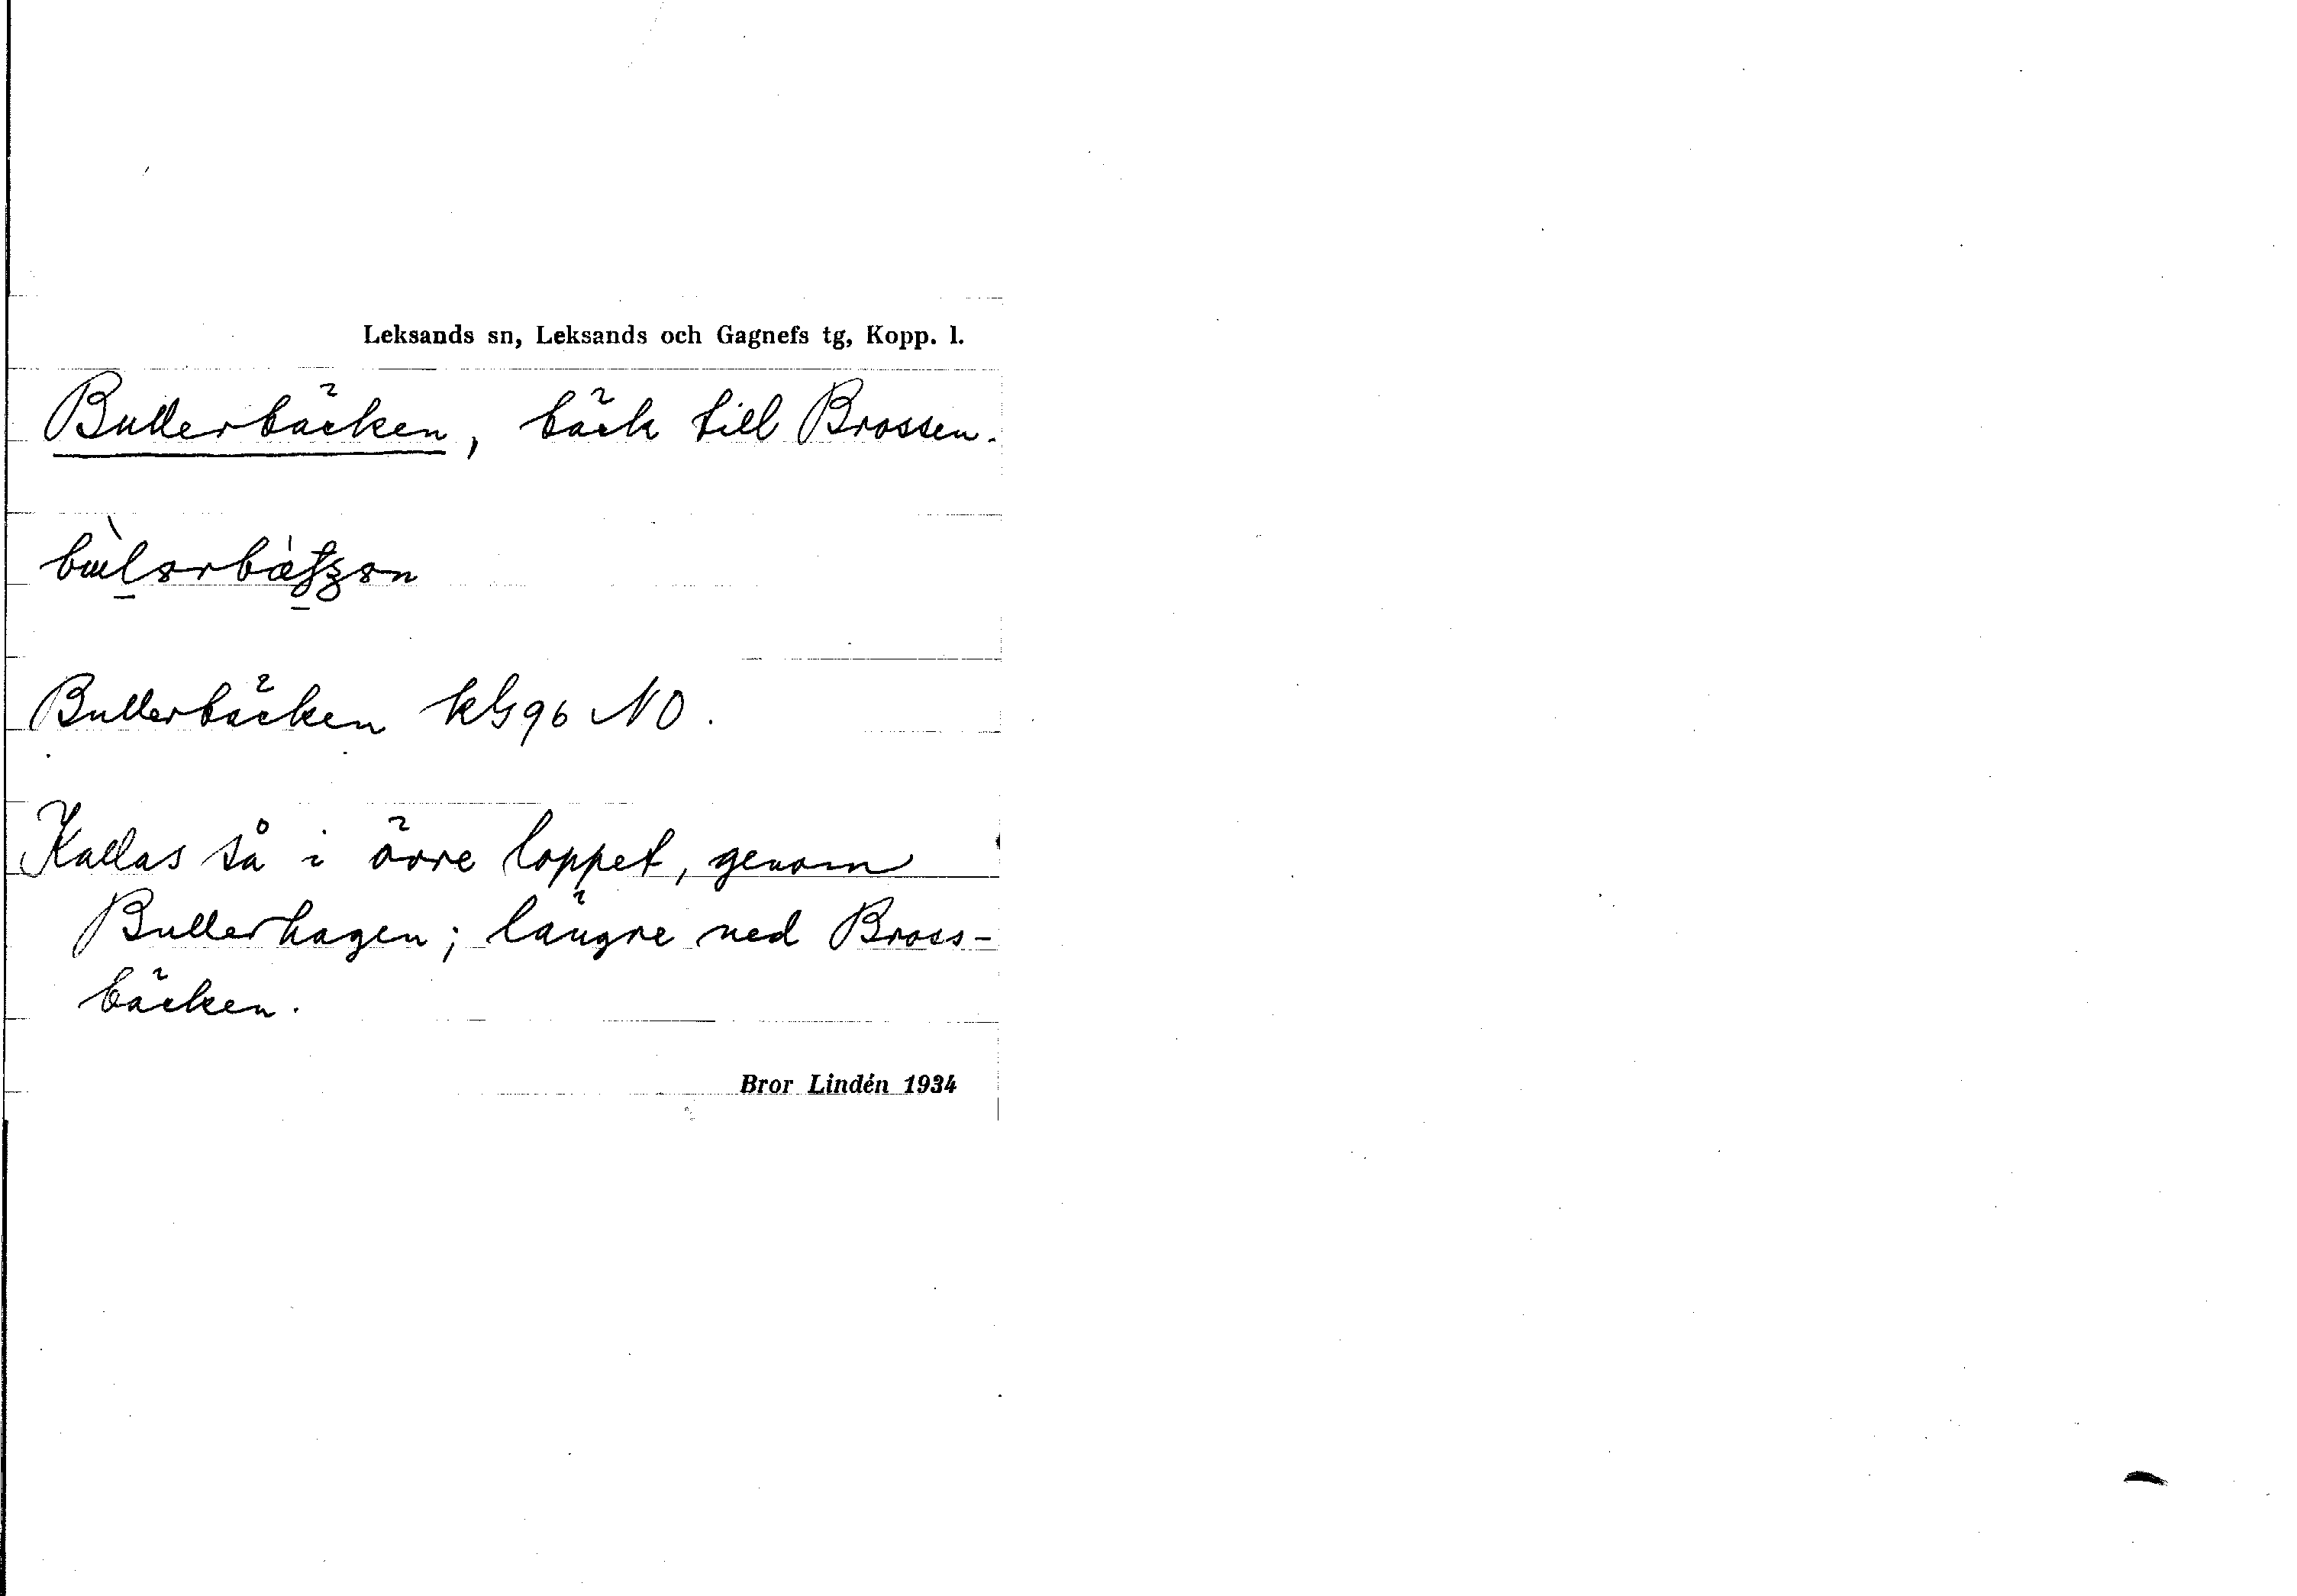 Leksands sn, Leksands och Gagnefs tg, Kopp. l.
Bullerbäcken, bäck till Brossen.
Bullerbäcken kG96 NO.
Kallas så i övre loppet, genom
Bullerhagen; längre ned Bross-
bäcken.
Bror Lindén 1934